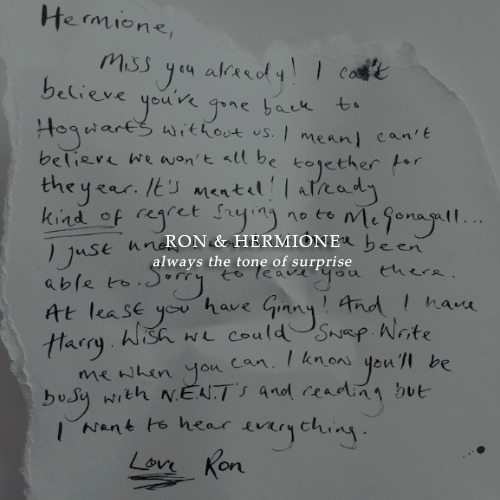 Hermione,
Miss you already! I can't
believe you've gone back to
Hogwarts without us. I mean I can't
believe we won't all be together for
the year. It's mental! I already
kind of regret saying no to McGonagall...
I just been
RON & HERMIONE
always the tone of surprise
able to. Sorry to leave you there.
At least you have Ginny! And I have
Harry. Wish we could swap. Write
me when you can. I know you'll be
busy with N.E.W.T's and reading but
I want to hear everything.
Love Ron